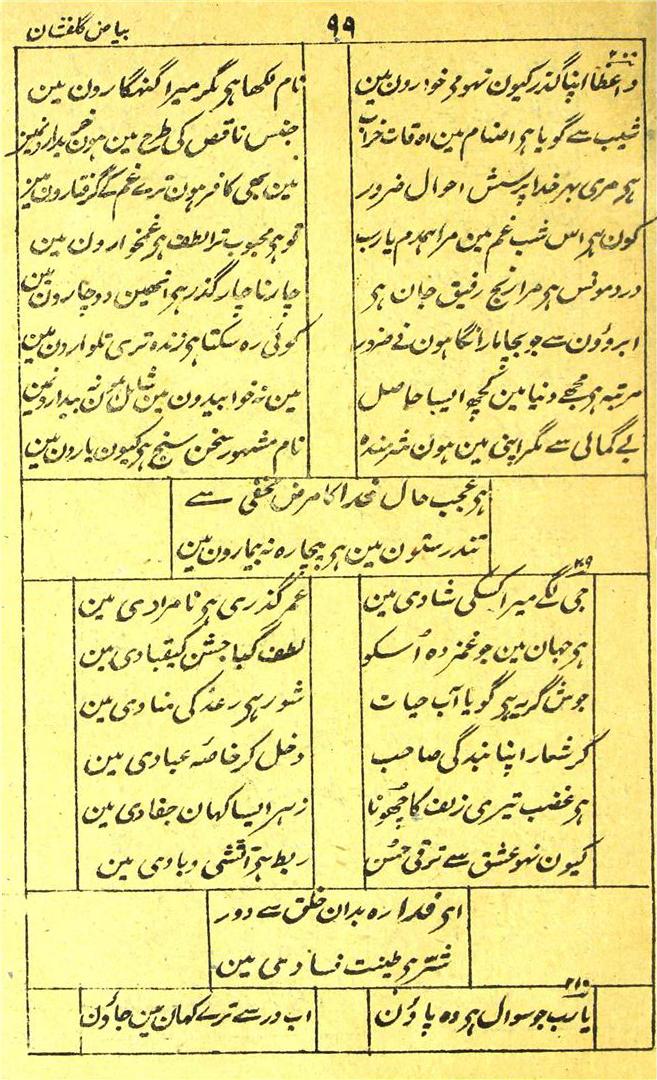 بیاض گلفشان
۹۹
۲۰۰
واعظا اپنا گذر کیون نہو میخوارون مین
نام لکھا ہے مگر میرا گنہگارون مین
شیب سے گویا ہے اصنام مین اوقات خراب
جنس ناقص کی طرح مین ہون
ہے مری بہر خدا پرسش احوال ضرور
مین بھی کافر ہون ترے غم کے گرفتارون مین
کون ہے اس شب غم مین مرا ہمدم یارب
تو ہے محبوب ترا لطف ہے غمخوارون مین
درد مونس ہے مرا رنج رفیق جان ہے
چار ناچار گذر ہے انھین دو چارون مین
ابروؤن سے جو بچا مارا نگاہون نے ضرور
کوئی رہ سکتا ہے زندہ تری تلوارون مین
مرتبہ ہے مجھے دنیا مین کچھ ایسا حاصل
مین نہ خوابیدون مین شامل ہون نہ بیدارون مین
بے کمالی سے مگر اپنی مین ہون شرمندہ
نام مشہور سخن سنج ہے کیون یارون مین
ہے عجب حال فدا کا مرض مخفی سے
تندرستون مین ہے بیچارہ نہ بیمارون مین
۲۰۹
جی لگے میرا کسکی شادی مین
عمر گذری ہے نامرادی مین
ہے جہان مین جو غمزدہ اُسکو
لطف کیا جشن کیقبادی مین
جوش گریہ ہے گویا آب حیات
شور ہے رعد کی منادی مین
کر شعار اپنا بندگی صاحب
دخل کر خاصہ عبادی مین
ہے غضب تیری زلف کا چھونا
زہر ایسا کہان جفادی مین
کیون نہو عشق سے ترقی حسن
ربط ہے آتشی و بادی مین
اے فدا رہ بدان خلق سے دور
شر ہے طینت فسادی مین
۲۱۰
یارب جو سوال ہے وہ پاؤن
اب در سے ترے کہان مین جاؤن